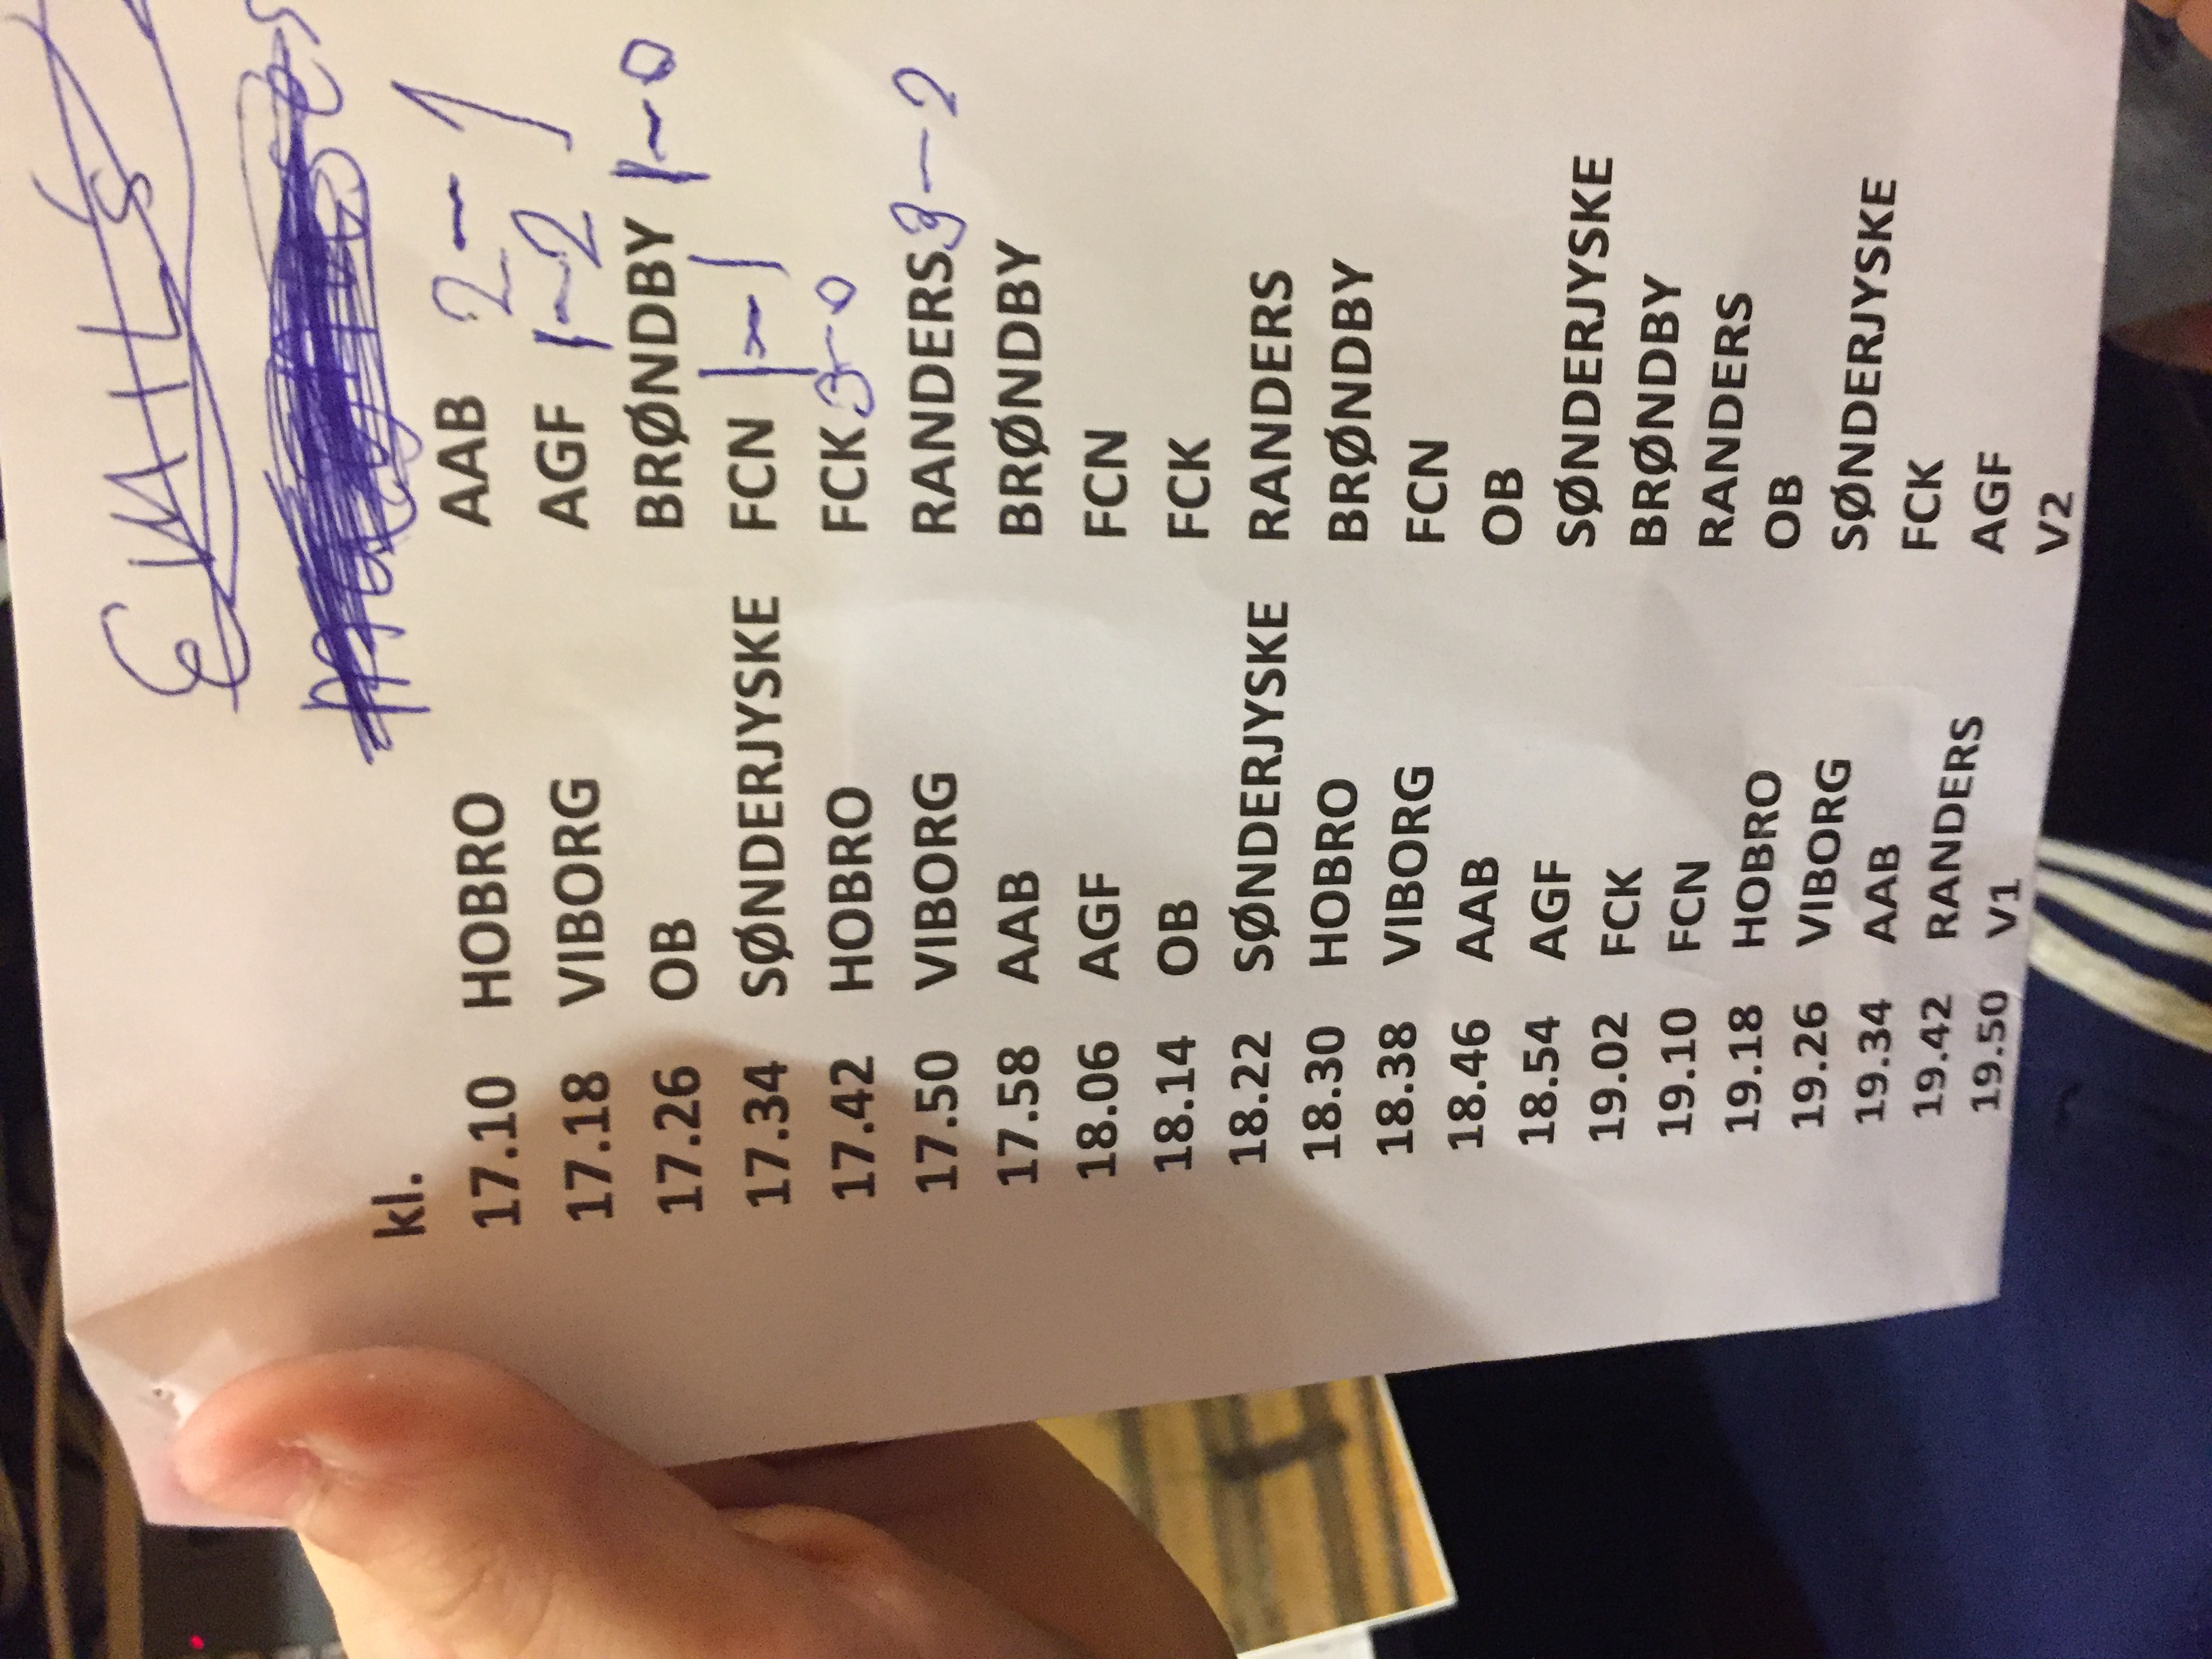 EMILS
kl.
17.10 HOBRO AAB 2-1
17.18 VIBORG AGF 1-2
17.26 OB BRØNDBY 1-0
17.34 SØNDERJYSKE FCN 1-1
17.42 HOBRO FCK 3-0
17.50 VIBORG RANDERS 3-2
17.58 AAB BRØNDBY
18.06 AGF FCN
18.14 OB FCK
18.22 SØNDERJYSKE RANDERS
18.30 HOBRO BRØNDBY
18.38 VIBORG FCN
18.46 AAB OB
18.54 AGF SØNDERJYSKE
19.02 FCK BRØNDBY
19.10 FCN RANDERS
19.18 HOBRO OB
19.26 VIBORG SØNDERJYSKE
19.34 AAB FCK
19.42 RANDERS AGF
19.50 V1 V2